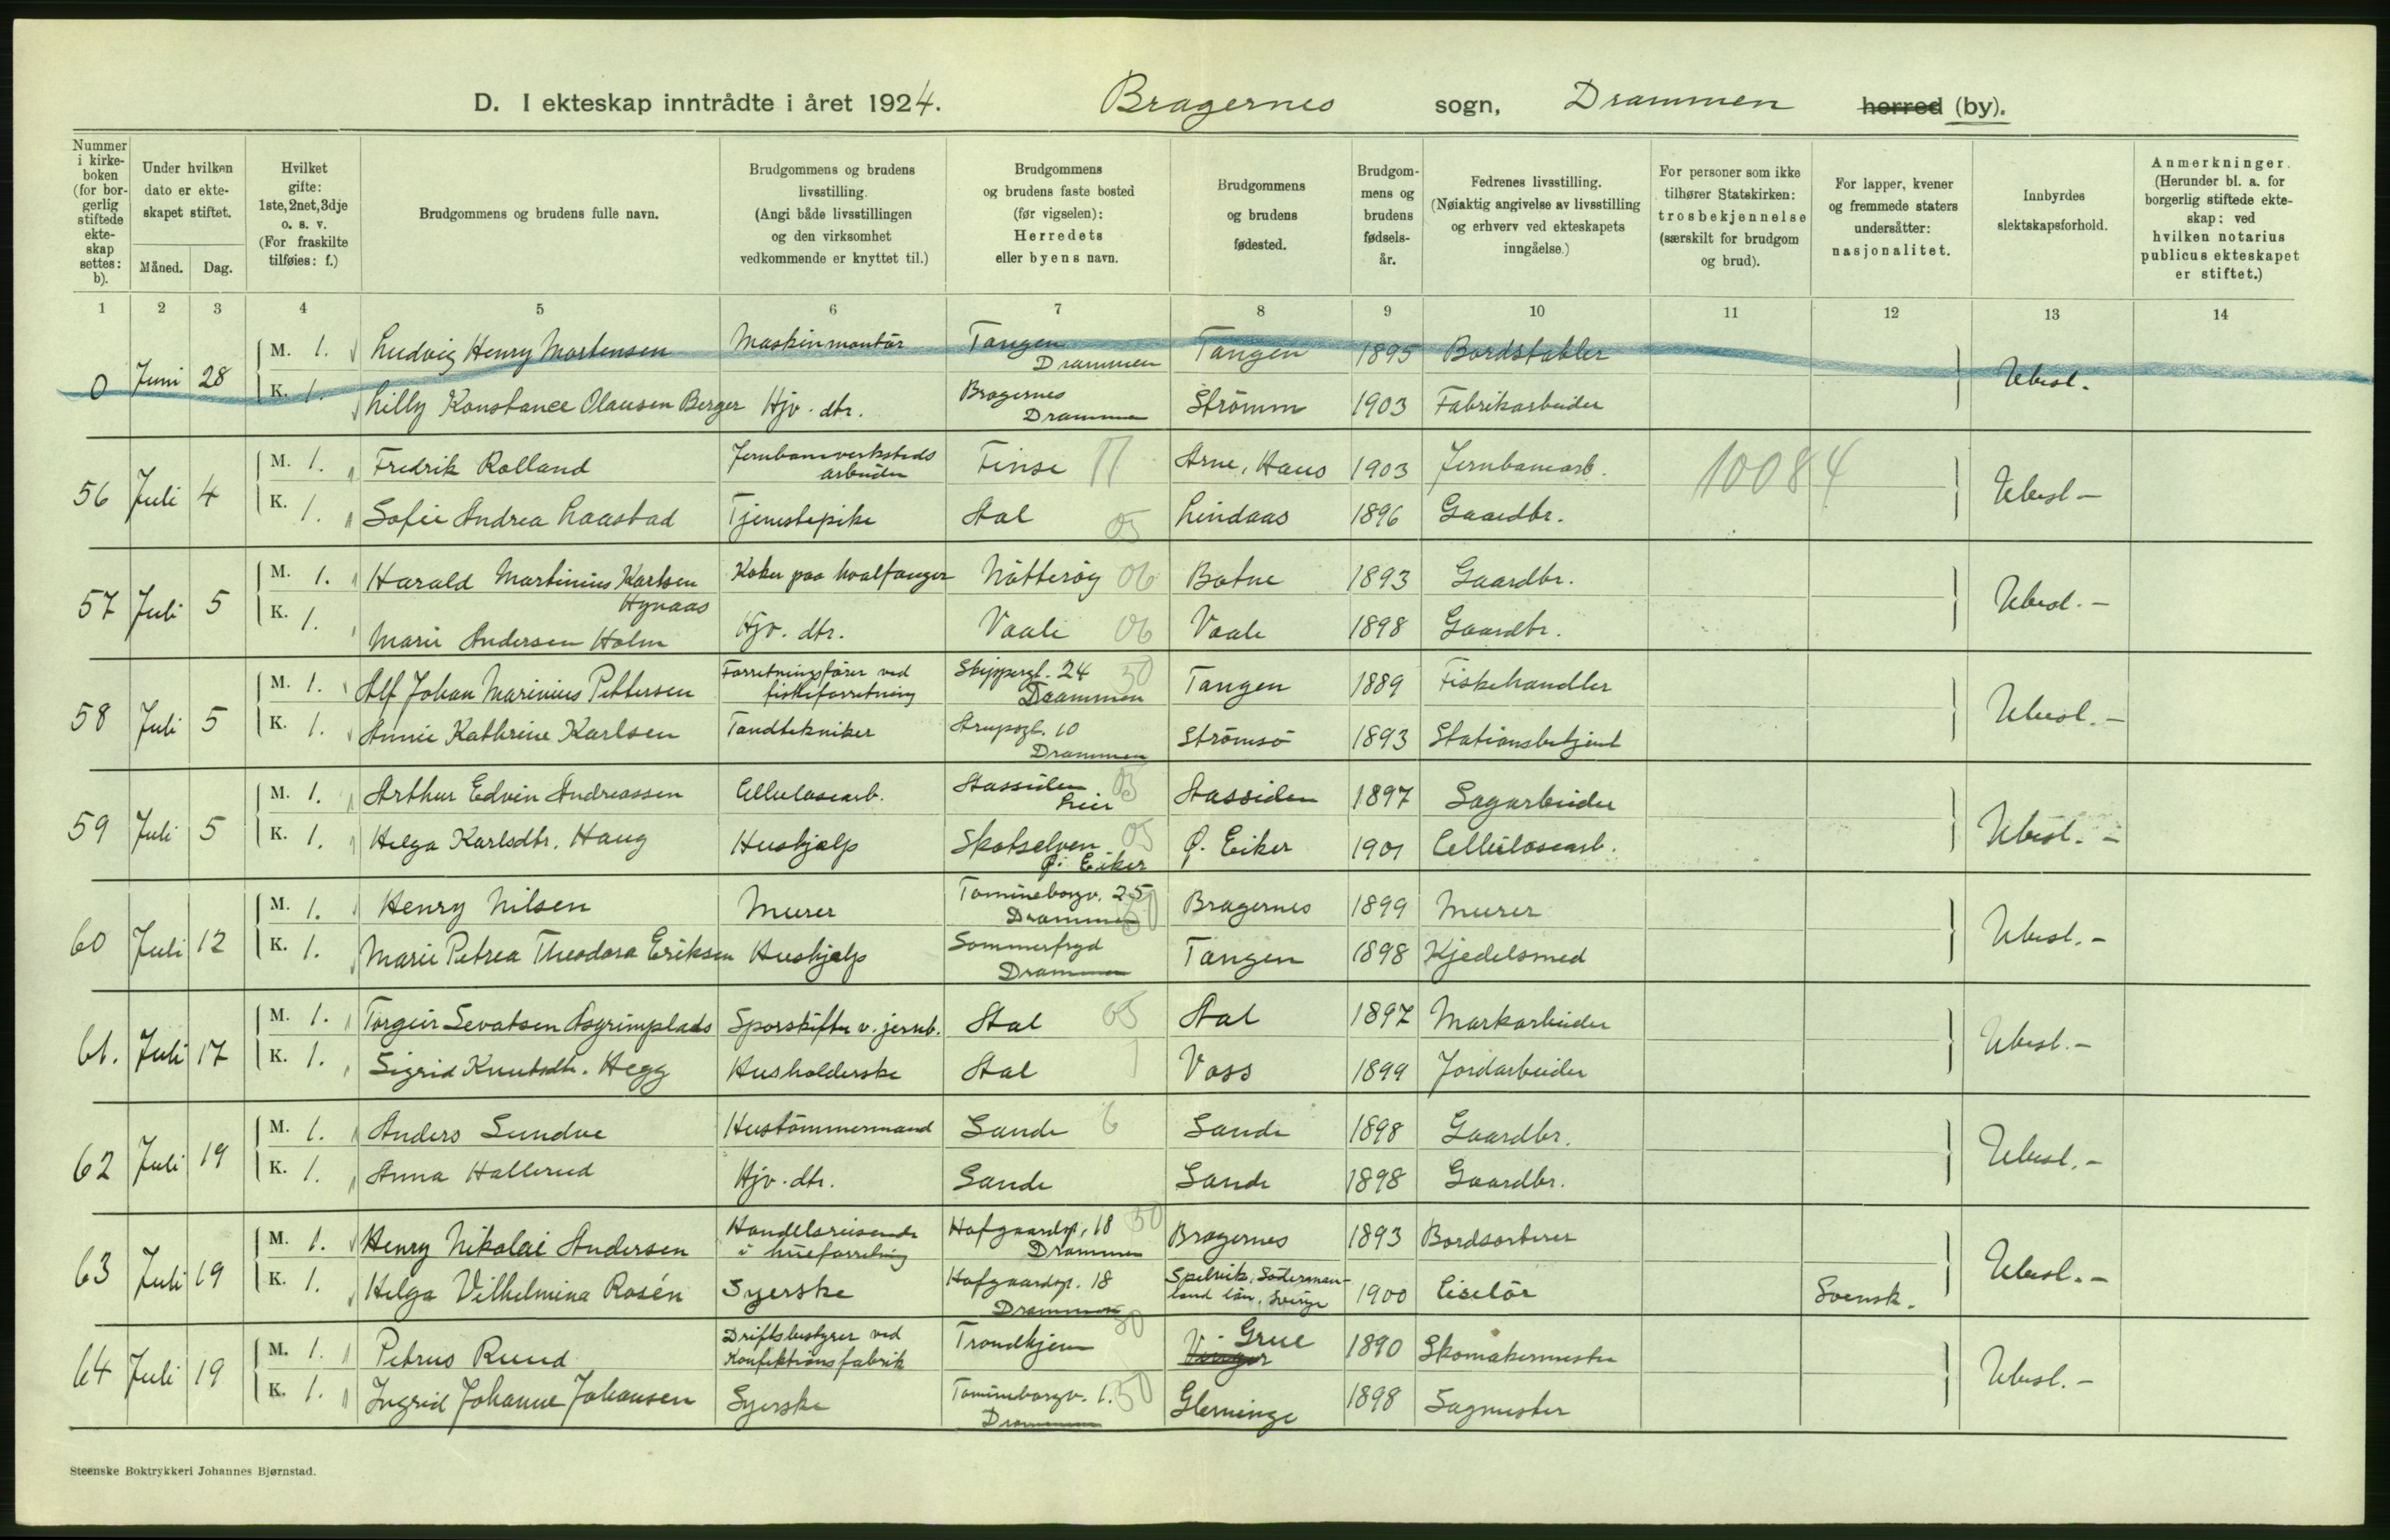 D. I ekteskap inntrådte i året 1924. Bragernes sogn, Drammen herred (by).
Nummer i kirkeboken (for borgerlig stiftede ekteskap settes: b).
Under hvilken dato er ekteskapet stiftet.
Måned. Dag.
Hvilket gifte: 1ste, 2net, 3dje o. s. v. (For fraskilte tilføies: f.)
Brudgommens og brudens fulle navn.
Brudgommens og brudens livsstilling. (Angi både livsstillingen og den virksomhet vedkommende er knyttet til.)
Brudgommens og brudens faste bosted (før vigselen): Herredets eller byens navn.
Brudgommens og brudens fødested.
Brudgommens og brudens fødselsår.
Fedrenes livsstilling. (Nøiaktig angivelse av livsstilling og erhverv ved ekteskapets inngåelse.)
For personer som ikke tilhører Statskirken: trosbekjennelse (særskilt for brudgom og brud).
For lapper, kvener og fremmede staters undersåtter: nasjonalitet.
Innbyrdes slektskapsforhold.
Anmerkninger. (Herunder bl. a. for borgerlig stiftede ekteskap: ved hvilken notarius publicus ekteskapet er stiftet.)
1 2 3 4 5 6 7 8 9 10 11 12 13 14
0 Juni 28 M. 1. Ludvig Henry Martensen Maskinmontör Tangen Drammen Tangen 1895 Bordstabler Ubesl.
K. 1. Lilly Konstance Olausen Berger Hjv. dtr. Bragernes Drammen Strömm 1903 Fabrikarbeider
56 Juli 4 M. 1. Fredrik Rolland Jernbaneverksteds arbeider Finse 11 Arne, Haus 1903 Jernbanearb. 10084 Ubesl -
K. 1. Sofie Andrea Laastad Tjenestepike Aal 05 Lindaas 1896 Gaardbr.
57 Juli 5 M. 1. Harald Martinius Karlsen Hynaas Koker paa hvalfanger Nötteröy 06 Botne 1893 Gaardbr. Ubesl. -
K. 1. Marie Andersen Holm Hjv. dtr. Vaale 06 Vaale 1898 Gaardbr.
58 Juli 5 M. 1. Alf Johan Marinius Pettersen Forretningsförer ved fiskeforretning Skippergt. 24 Drammen 30 Tangen 1889 Fiskehandler Ubesl. -
K. 1. Annie Kathrine Karlsen Tandtekniker Arupsgt. 10 Drammen Strömsö 1893 Stationsbetjent
59 Juli 5 M. 1. Arthur Edvin Andreassen Cellulosearb. Aassiden Lier 05 Aassiden 1897 Sagarbeider Ubesl. -
K. 1. Helga Karlsdtr. Haug Hushjælp Skotselven Ø. Eiker 05 Ø. Eiker 1901 Cellulosearb.
60 Juli 12 M. 1. Henry Nilsen Murer Tomineborgv. 25 Drammen 30 Bragernes 1899 Murer Ubesl. -
K. 1. Marie Petrea Theodora Eriksen Hushjælp Sommerfryd Drammen Tangen 1898 Kjedelsmed
61. Juli 17 M. 1. Torgeir Sevatsen Asgrimplads Sporskifter v. jernb. Aal 05 Aal 1897 Markarbeider Ubesl. -
K. 1. Sigrid Knutsdtr. Hegg Husholderske Aal Voss 1899 Jordarbeider
62 Juli 19 M. 1. Anders Sundve Hustömmermand Sande 6 Sande 1898 Gaardbr. Ubesl. -
K. 1. Anna Hallerud Hjv. dtr. Sande Sande 1898 Gaardbr.
63 Juli 19 M. 1. Henry Nikolai Andersen Handelsreisende i hueforretning Hofgaardsgt. 18 Drammen 30 Bragernes 1893 Bordsorterer Ubesl. -
K. 1. Helga Vilhelmina Rosén Syerske Hofgaardsgt. 18 Drammen Spelvik, Södermanland län, Sverige 1900 Ciselör Svensk.
64 Juli 19 M. 1. Petrus Ruud Driftsbestyrer ved Konfektionsfabrik Trondhjem 50 Vinger Grue 1890 Skomakermester Ubesl. -
K. 1. Ingrid Johanne Johansen Syerske Tomineborgv. 1. Drammen 30 Glemminge 1898 Sagmester
Steenske Boktrykkeri Johannes Bjørnstad.